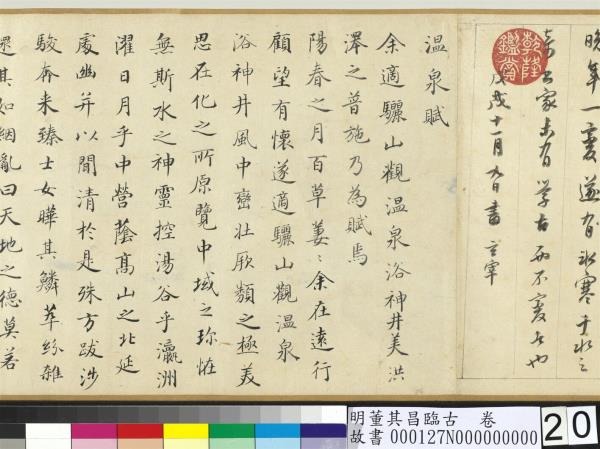 晚年一變遂有冰寒于水之
奇書家未有學古而不變者也
戊戌十一月 書 玄宰
乾隆鑑賞
溫泉賦
余適驪山觀溫泉浴神井美洪
澤之普施乃為賦焉
陽春之月百草萋〻余在遠行
顧望有懷遂適驪山觀溫泉
浴神井風中巒壯厥類之極美
思在化之所原覽中域之珍怪
無斯水之神靈控湯谷乎瀛洲
濯日月乎中營蔭高山之北延
處幽并以閒清於是殊方跋涉
駿奔來臻士女曄其鱗萃紛雜
遝其如絪亂曰天地之德莫若
明董其昌臨古 卷
故書 000127N000000000
20